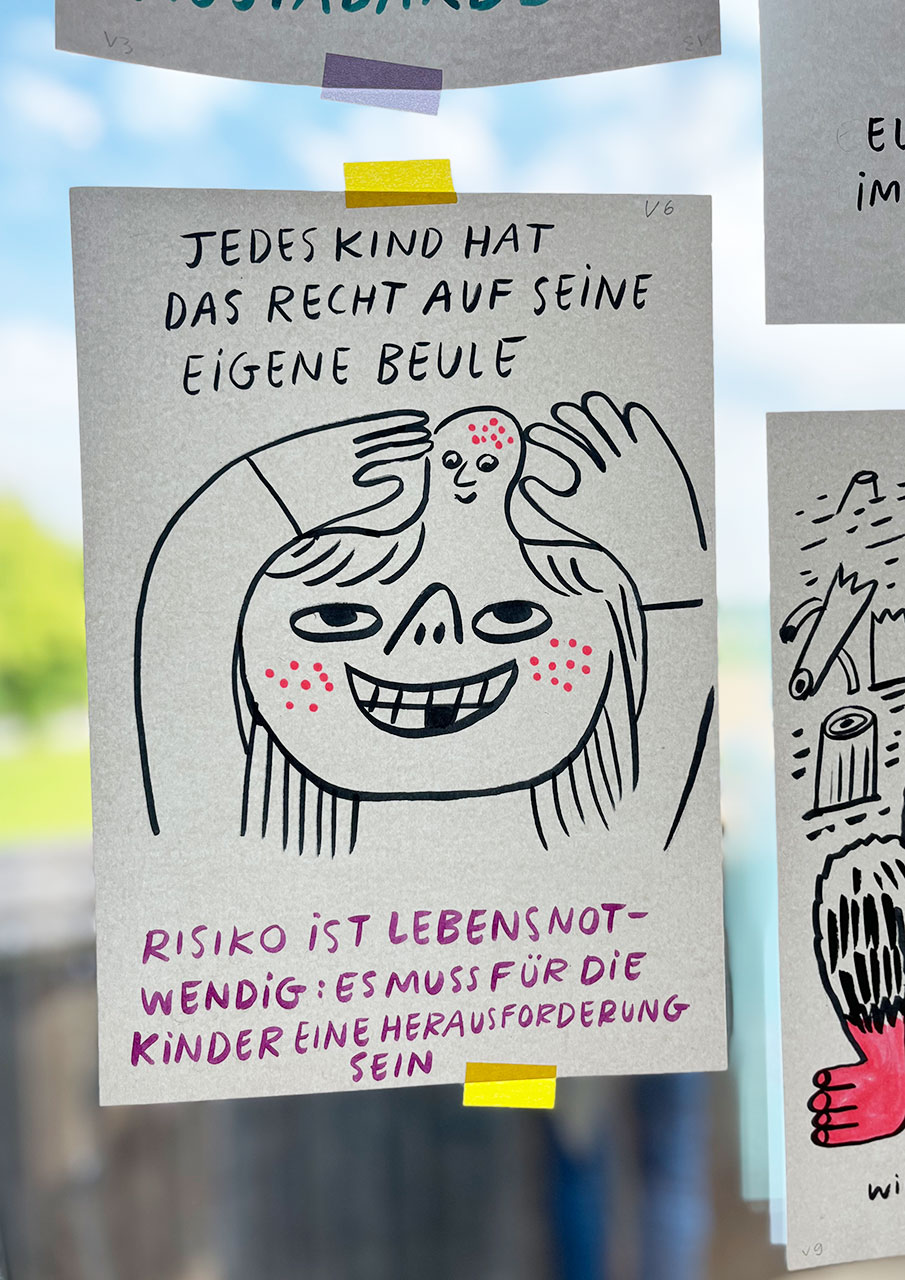 V3
V6
JEDES KIND HAT
DAS RECHT AUF SEINE
EIGENE BEULE
RISIKO IST LEBENSNOT-
WENDIG: ES MUSS FÜR DIE
KINDER EINE HERAUSFORDERUNG
SEIN
V9